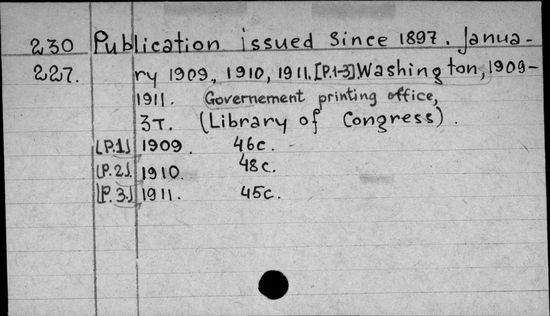 230 Publication issued since 1897. Janua-
227. ry 1909, 1910, 1911.[P.1-3] Washington, 1909-
1911. Governement printing office,
3т. (Library of Congress).
[P.1] 1909. 46c.
[P.2]. 1910. 48c.
[P.3.] 1911. 45c.